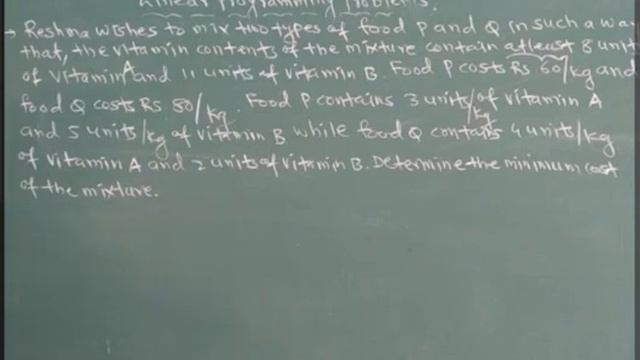 Linear Programming Problems.
→ Reshma wishes to mix two types of food P and Q in such a wa
that, the vitamin contents of the mixture contain atleast 8 unit
of vitamin A and 11 units of vitamin B. Food P costs Rs 60/kg and
food Q costs Rs 80/kg. Food P contains 3 units/kg of vitamin A
and 5 units/kg of vitamin B while food Q contains 4 units/kg
of vitamin A and 2 units of vitamin B. Determine the minimum cost
of the mixture.